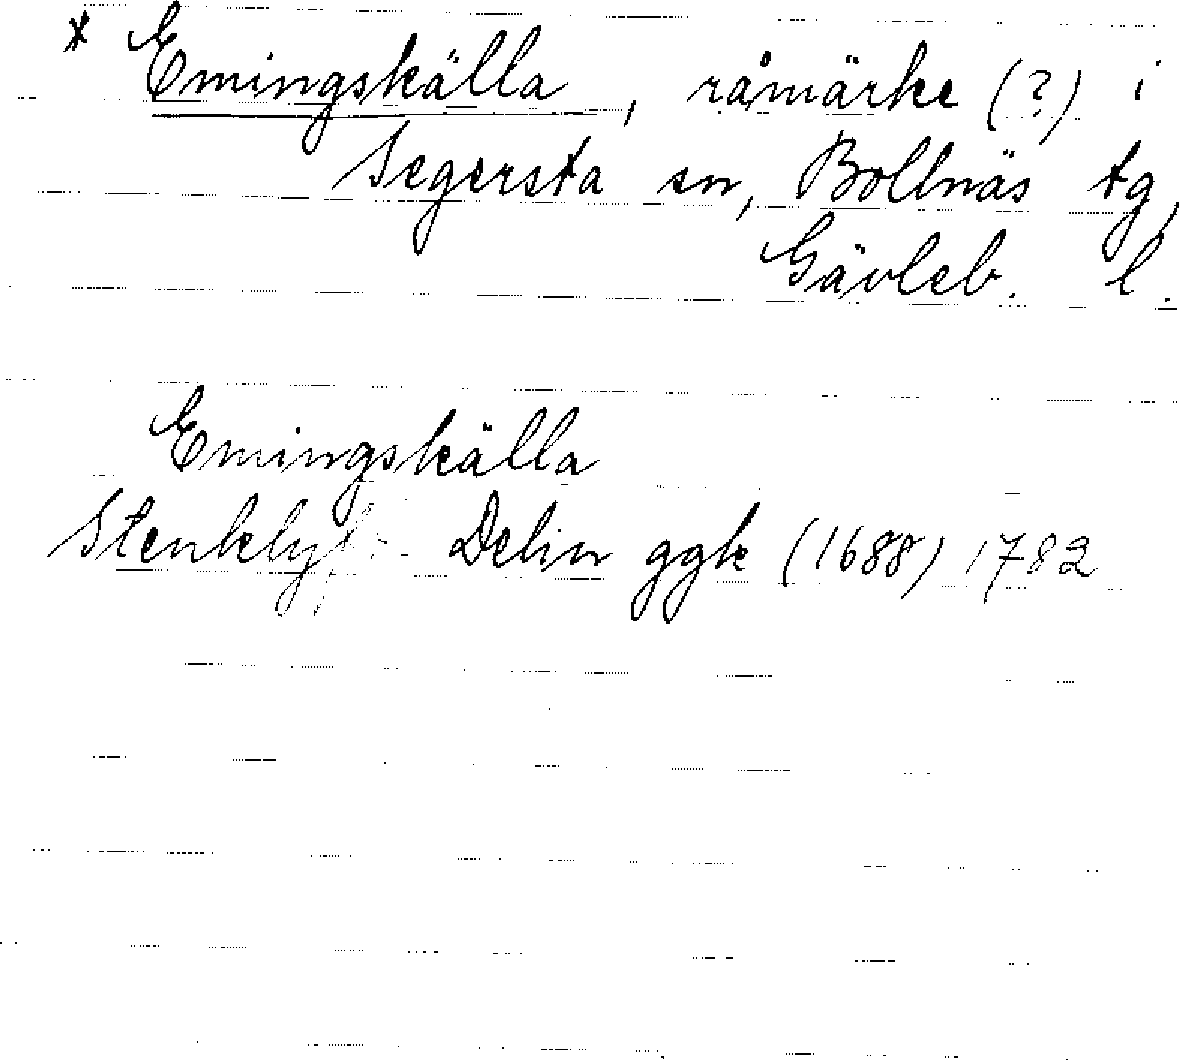 * Emingskälla, råmärke (?) i
Segersta sn, Bollnäs tg,
Gävleb. l.
Emingskälla
Delin ggk (1688) 1782